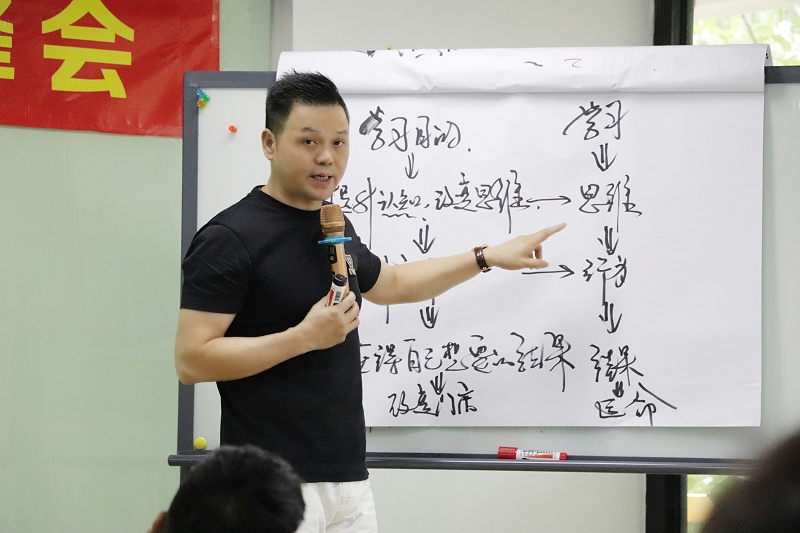 会
学习目的.
学习
认知, 改变思维. → 思维
→ 行为
得自己想要的结果
结果
改变门店
命